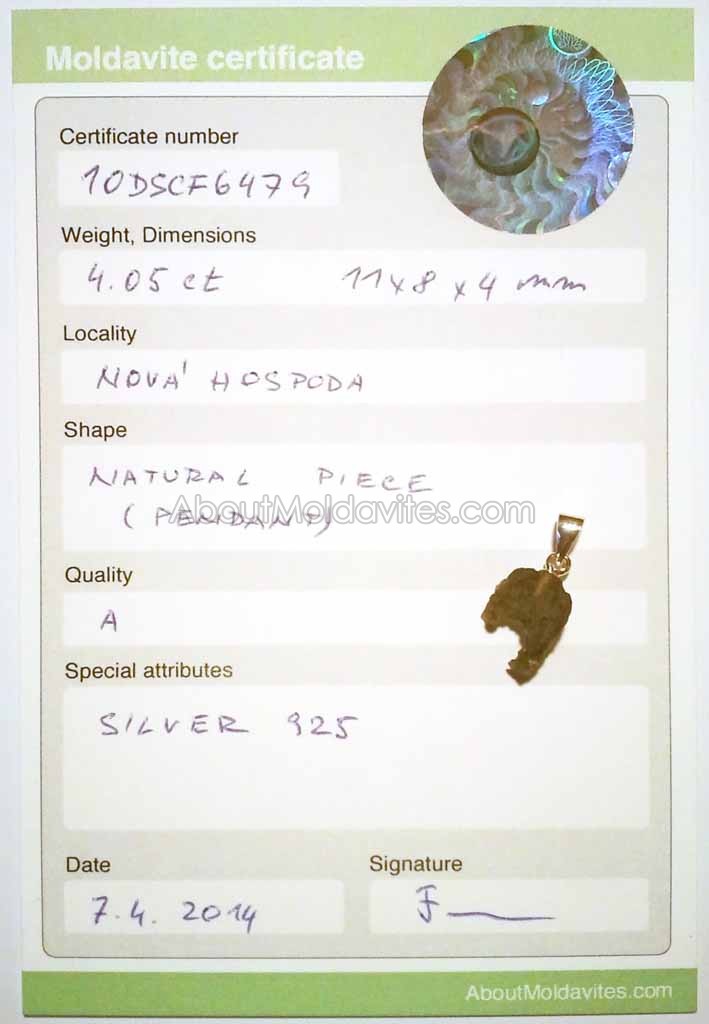 Moldavite certificate
Certificate number
10DSCF6479
Weight, Dimensions
4.05 ct 11x8x4 mm
Locality
NOVÁ HOSPODA
Shape
NATURAL PIECE
(PENDANT)
AboutMoldavites.com
Quality
A
Special attributes
SILVER 925
Date
Signature
7.4. 2014
AboutMoldavites.com